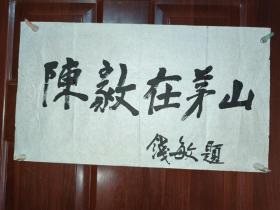 陳毅在茅山
錢敏題